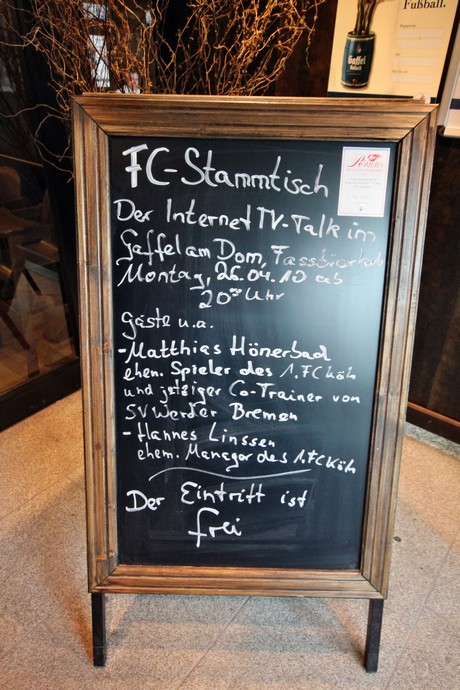 Fußball.
Gaffel
FC-Stammtisch
Der Internet TV-Talk im
Gaffel am Dom,
Montag, 26.04.10 ab
20⁰⁰ Uhr
Gäste u.a.
-Matthias Hönerbad
ehem. Spieler des 1.FC Köln
und jetziger Co-Trainer von
SV Werder Bremen
-Hannes Linssen
ehem. Manager des 1.FC Köln
Der Eintritt ist
frei